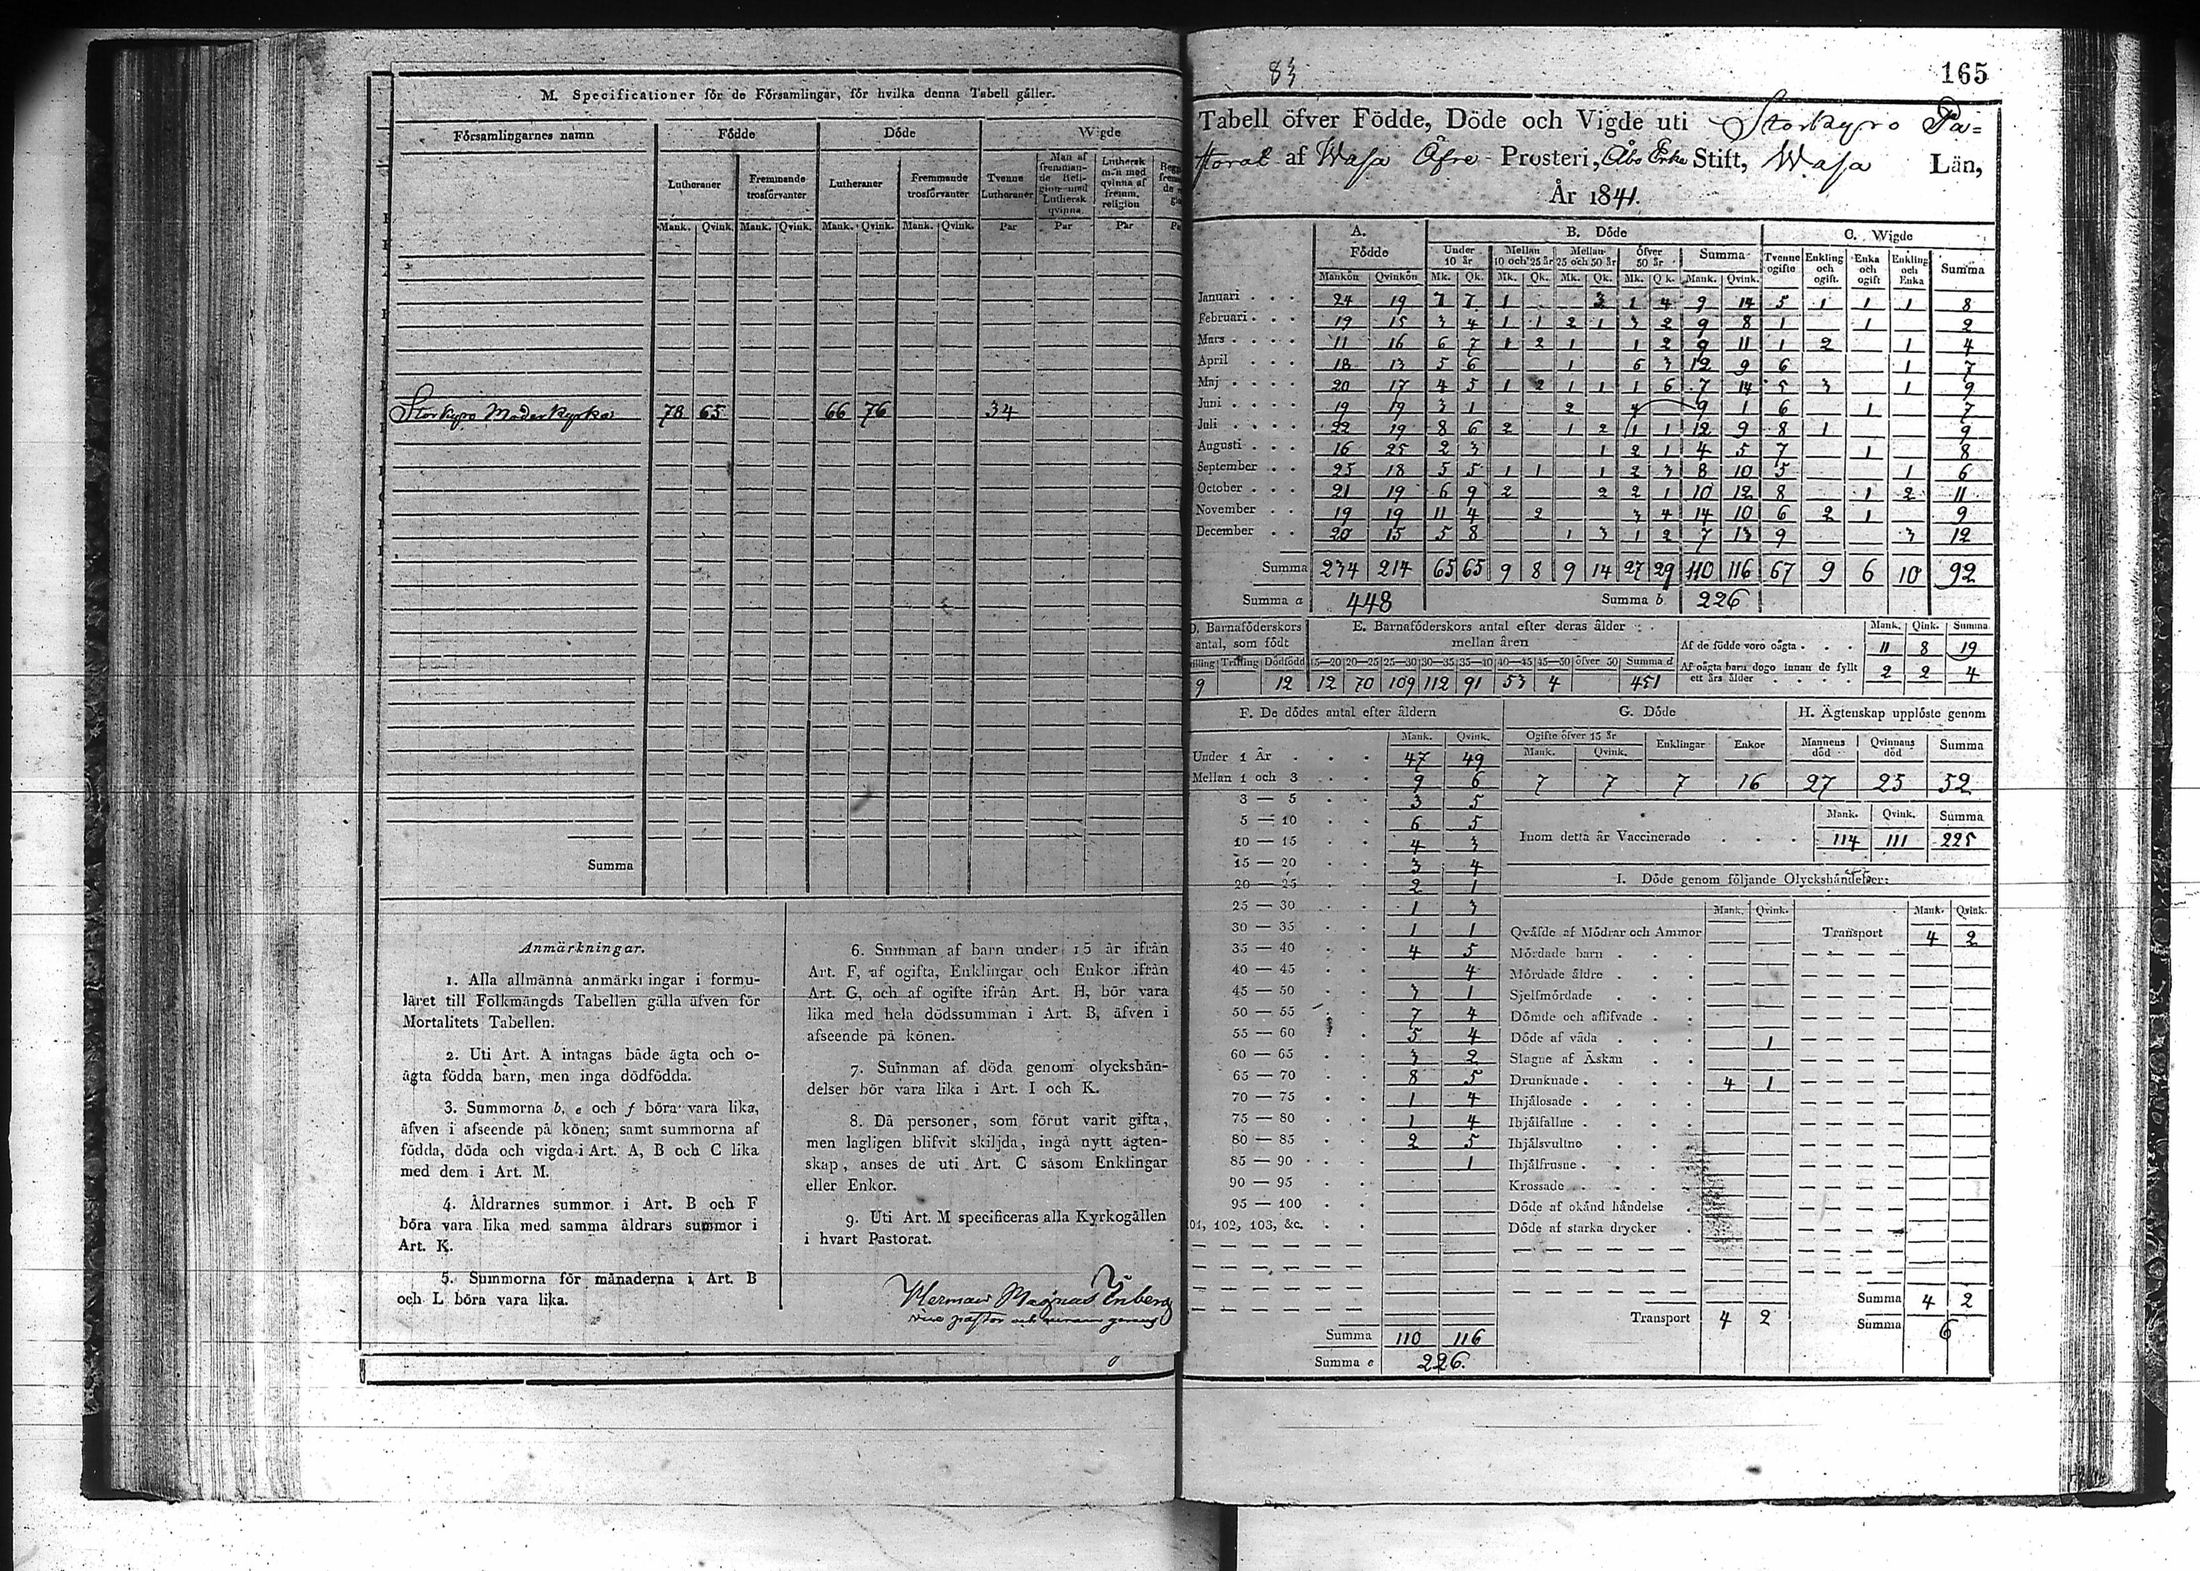 M. Specificationer för de Församlingar, för hvilka denna Tabell gäller.
Församlingarnes namn Födde Döde Wigde
Lutheraner Fremmande trosförvanter Lutheraner Fremmande trosförvanter Tvenne Lutheraner Man af fremmande Religion med Luthersk qvinna. Luthersk man med qvinna af fremm. religion
Mank. Qvink. Mank. Qvink. Mank. Qvink. Mank. Qvink. Par Par Par
Storkyro Moderkyrka 78 65 66 76 34
Summa
Anmärkningar.
1. Alla allmänna anmärkningar i formu-
läret till Folkmängds Tabellen gälla äfven för
Mortalitets Tabellen.
2. Uti Art. A intagas både ägta och o-
ägta födda barn, men inga dödfödda.
3. Summorna b, e och f böra vara lika,
äfven i afseende på könen; samt summorna af
födda, döda och vigda i Art. A, B och C lika
med dem i Art. M.
4. Åldrarnes summor i Art. B och F
böra vara lika med samma åldrars summor i
Art. K.
5. Summorna för månaderna i Art. B
och L böra vara lika.
6. Summan af barn under 15 år ifrån
Art. F, af ogifta, Enklingar och Enkor ifrån
Art. G, och af ogifte ifrån Art. H, bör vara
lika med hela dödssumman i Art. B, äfven i
afseende på könen.
7. Summan af döda genom olyckshän-
delser bör vara lika i Art. I och K.
8. Då personer, som förut varit gifta,
men lagligen blifvit skiljda, ingå nytt ägten-
skap, anses de uti Art. C såsom Enklingar
eller Enkor.
9. Uti Art. M specificeras alla Kyrkogällen
i hvart Pastorat.
Herman Magnus Enberg
vice pastor
165
Tabell öfver Födde, Döde och Vigde uti Storkyro Pa=
storat af Wasa Öfre Prosteri, Åbo Erke Stift, Wasa Län,
År 1841.
A. Födde B. Döde C. Wigde
Under 10 år Mellan 10 och 25 år Mellan 25 och 50 år öfver 50 år Summa Tvenne ogifte Enkling och ogift. Enka och ogift Enkling och Enka Summa
Mankön Qvinkön Mk. Qk. Mk. Qk. Mk. Qk. Mk. Qk. Mank. Qvink.
Januari . . . 24 19 7 7 1 3 1 4 9 14 5 1 1 1 8
Februari . . . 19 15 3 4 1 1 2 1 3 2 9 8 1 1 2
Mars . . . . 11 16 6 7 1 2 1 1 2 9 11 1 2 1 4
April . . . 18 13 5 6 1 6 3 12 9 6 1 7
Maj . . . . 20 17 4 5 1 2 1 1 1 6 7 14 5 3 1 9
Juni . . . . 19 19 3 1 2 4 9 1 6 1 7
Juli . . . . 22 19 8 6 2 1 2 1 1 12 9 8 1 9
Augusti . . . 16 25 2 3 1 2 1 4 5 7 1 8
September . . 25 18 5 5 1 1 1 2 3 8 10 5 1 6
October . . . 21 19 6 9 2 2 2 1 10 12 8 1 2 11
November . . 19 19 11 4 2 3 4 14 10 6 2 1 9
December . . 20 15 5 8 1 3 1 2 7 13 9 3 12
Summa 234 214 65 65 9 8 9 14 27 29 110 116 67 9 6 10 92
Summa a 448 Summa b 226
D. Barnaföderskors antal, som födt
Trilling Dödfödd
9 12
E. Barnaföderskors antal efter deras ålder mellan åren
15—20 20—25 25—30 30—35 35—40 40—45 45—50 öfver 50 Summa d
12 70 109 112 91 53 4 451
Mank. Qink. Summa
Af de födde voro oägta . . . 11 8 19
Af oägta barn dogo innan de fyllt ett års ålder . . . . 2 2 4
F. De dödes antal efter åldern
Mank. Qvink.
Under 1 År . . . 47 49
Mellan 1 och 3 . . 9 6
3 — 5 . . 3 5
5 — 10 . . 6 5
10 — 15 . . 4 3
15 — 20 . . 3 4
20 — 25 . . 2 1
25 — 30 . . 1 3
30 — 35 . . 1 1
35 — 40 . . 4 5
40 — 45 . . 4
45 — 50 . . 3 1
50 — 55 . . 7 4
55 — 60 . . 5 4
60 — 65 . . 3 2
65 — 70 . . 8 5
70 — 75 . . 1 4
75 — 80 . . 1 4
80 — 85 . . 2 5
85 — 90 . . 1
90 — 95 . .
95 — 100 . .
01, 102, 103, &c. . .
Summa 110 116
Summa e 226.
G. Döde
Ogifte öfver 15 år Enklingar Enkor
Mank. Qvink.
7 7 7 16
H. Ägtenskap upplöste genom
Mannens död Qvinnans död Summa
27 25 52
Mank. Qvink. Summa
Inom detta år Vaccinerade . . . 114 111 225
I. Döde genom följande Olyckshändelser:
Mank. Qvink. Mank. Qvink.
Qväfde af Mödrar och Ammor Transport 4 2
Mördade barn . . .
Mördade äldre . . .
Sjelfmördade . . .
Dömde och aflifvade . .
Döde af våda . . . 1
Slagne af Åskan . .
Drunknade . . . . 4 1
Ihjälosade . . . .
Ihjälfallne . . . .
Ihjälsvultne . . .
Ihjälfrusne . . . .
Krossade . . . .
Döde af okänd händelse .
Döde af starka drycker .
Summa 4 2
Transport 4 2 Summa 6